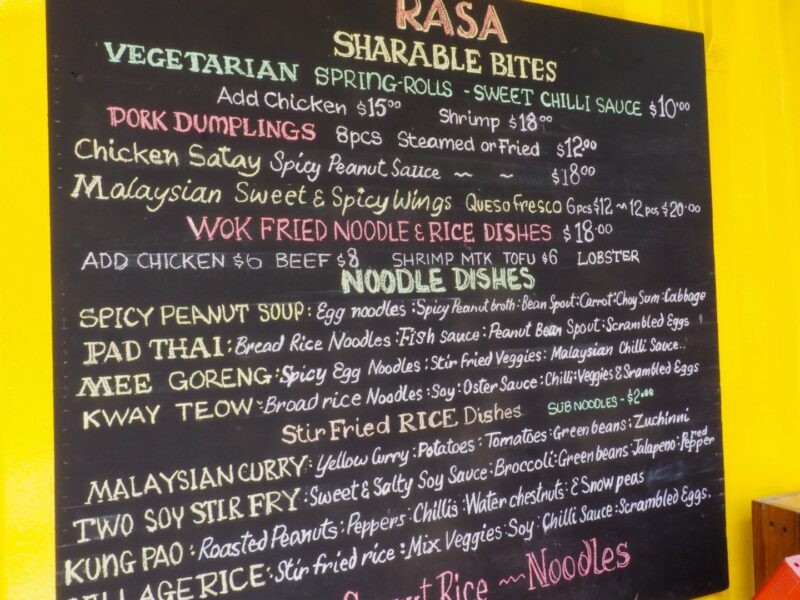 RASA
SHARABLE BITES
VEGETARIAN SPRING-ROLLS - SWEET CHILLI SAUCE $10.00
Add Chicken $15.00 Shrimp $18.00
PORK DUMPLINGS 8pcs Steamed or Fried $12.00
Chicken Satay Spicy Peanut Sauce ~ ~ $18.00
Malaysian Sweet & Spicy Wings Queso Fresco 6pcs $12 ~ 12 pcs $20.00
WOK FRIED NOODLE & RICE DISHES $18.00
ADD CHICKEN $6 BEEF $8 SHRIMP MTK TOFU $6 LOBSTER
NOODLE DISHES
SPICY PEANUT SOUP: Egg noodles: Spicy Peanut broth: Bean Spout: Carrot: Choy Sum: Cabbage
PAD THAI: Bread Rice Noodles: Fish Sauce: Peanut Bean Spout: Scrambled Eggs
MEE GORENG: Spicy Egg Noodles: Stir Fried Veggies: Malaysian Chilli Sauce..
KWAY TEOW: Broad rice Noodles: Soy: Oster Sauce: Chilli: Veggies & Srambled Eggs
Stir Fried RICE Dishes SUB NOODLES - $2.00
MALAYSIAN CURRY: Yellow Curry: Potatoes: Tomatoes: Green beans: Zuchinni
TWO SOY STIR FRY: Sweet & Salty Soy Sauce: Broccoli: Green beans: Jalapeno: Red Pepper
KUNG PAO: Roasted Peanuts: Peppers: Chillis: Water chestnuts: & Snow peas
RICE: Stir fried rice: Mix Veggies: Soy: Chilli Sauce: Scrambled Eggs.
Rice ~ Noodles